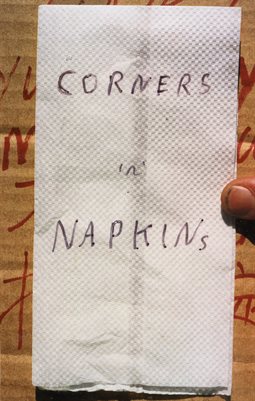 CORNERS
'n'
NAPKINs